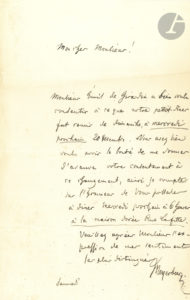 Monsieur Monsieur!
Monsieur Emil de Girardin a bien voulu
consentir à ce que notre petit diner
fut remis de dimanche à mercredi
prochain 20 Avez bien
voulu avoir la bonté de me donner
d'avance votre consentement à
ce changement, ainsi je compte
sur l'honneur de Vous posséder
à diner Mercredi prochain à 6 heures
à la maison dorée Rue Lafitte.
Veuillez agréer Monsieur l'ex-
pression de mes sentiments
les plus distingués
Meyerbeer
Samedi